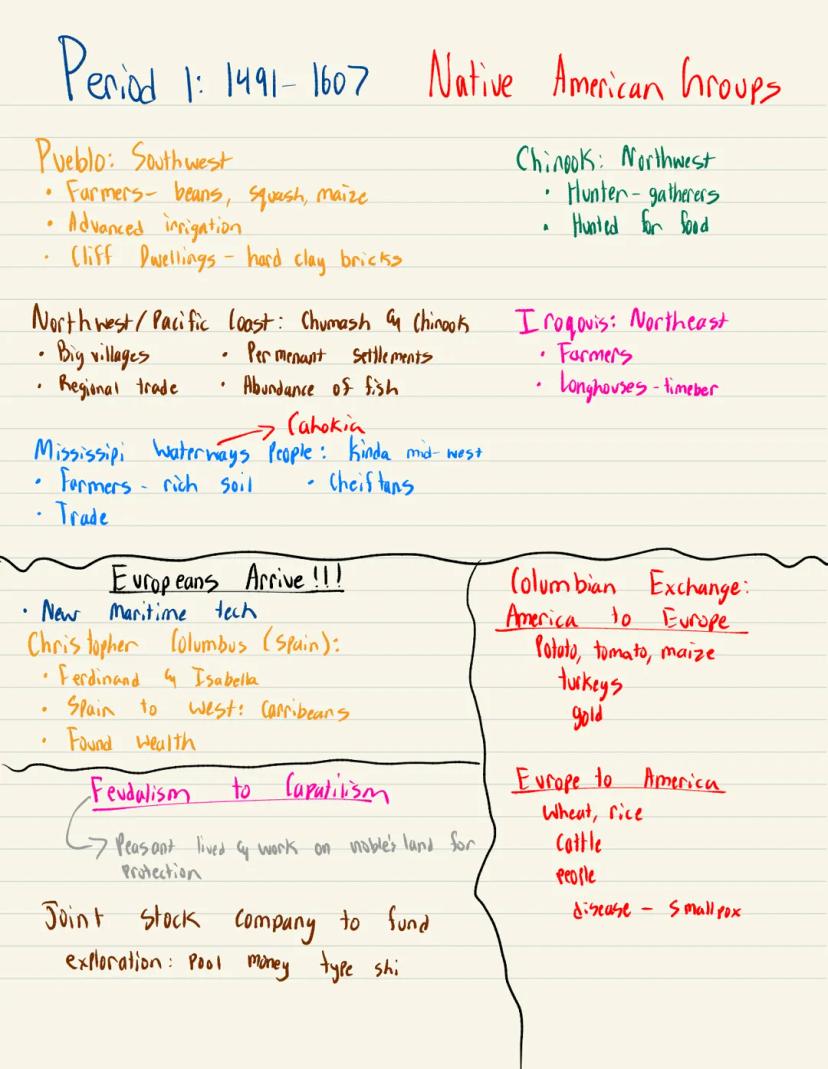 Period 1: 1491- 1607 Native American Groups
Pueblo: Southwest
• Farmers- beans, squash, maize
• Advanced irrigation
• Cliff Dwellings - hard clay bricks
Chinook: Northwest
• Hunter-gatherers
• Hunted for food
Northwest/Pacific Coast: Chumash & Chinook
• Big villages
• Permenant settlements
• Regional trade
• Abundance of fish
Iroqouis: Northeast
• Farmers
• Longhouses - timeber
→ Cahokia
Mississipi Waterways People: kinda mid-west
• Farmers - rich soil
• Cheiftans
• Trade
Europeans Arrive!!!
• New maritime tech
Christopher Columbus (Spain):
• Ferdinand & Isabella
• Spain to west: Carribeans
• Found wealth
Feudalism to Capatilism
→ Peasant lived & work on noble's land for
protection
Joint stock company to fund
exploration: pool money type shi
Columbian Exchange:
America to Europe
Potato, tomato, maize
turkeys
gold
Europe to America
wheat, rice
cattle
people
disease - smallpox